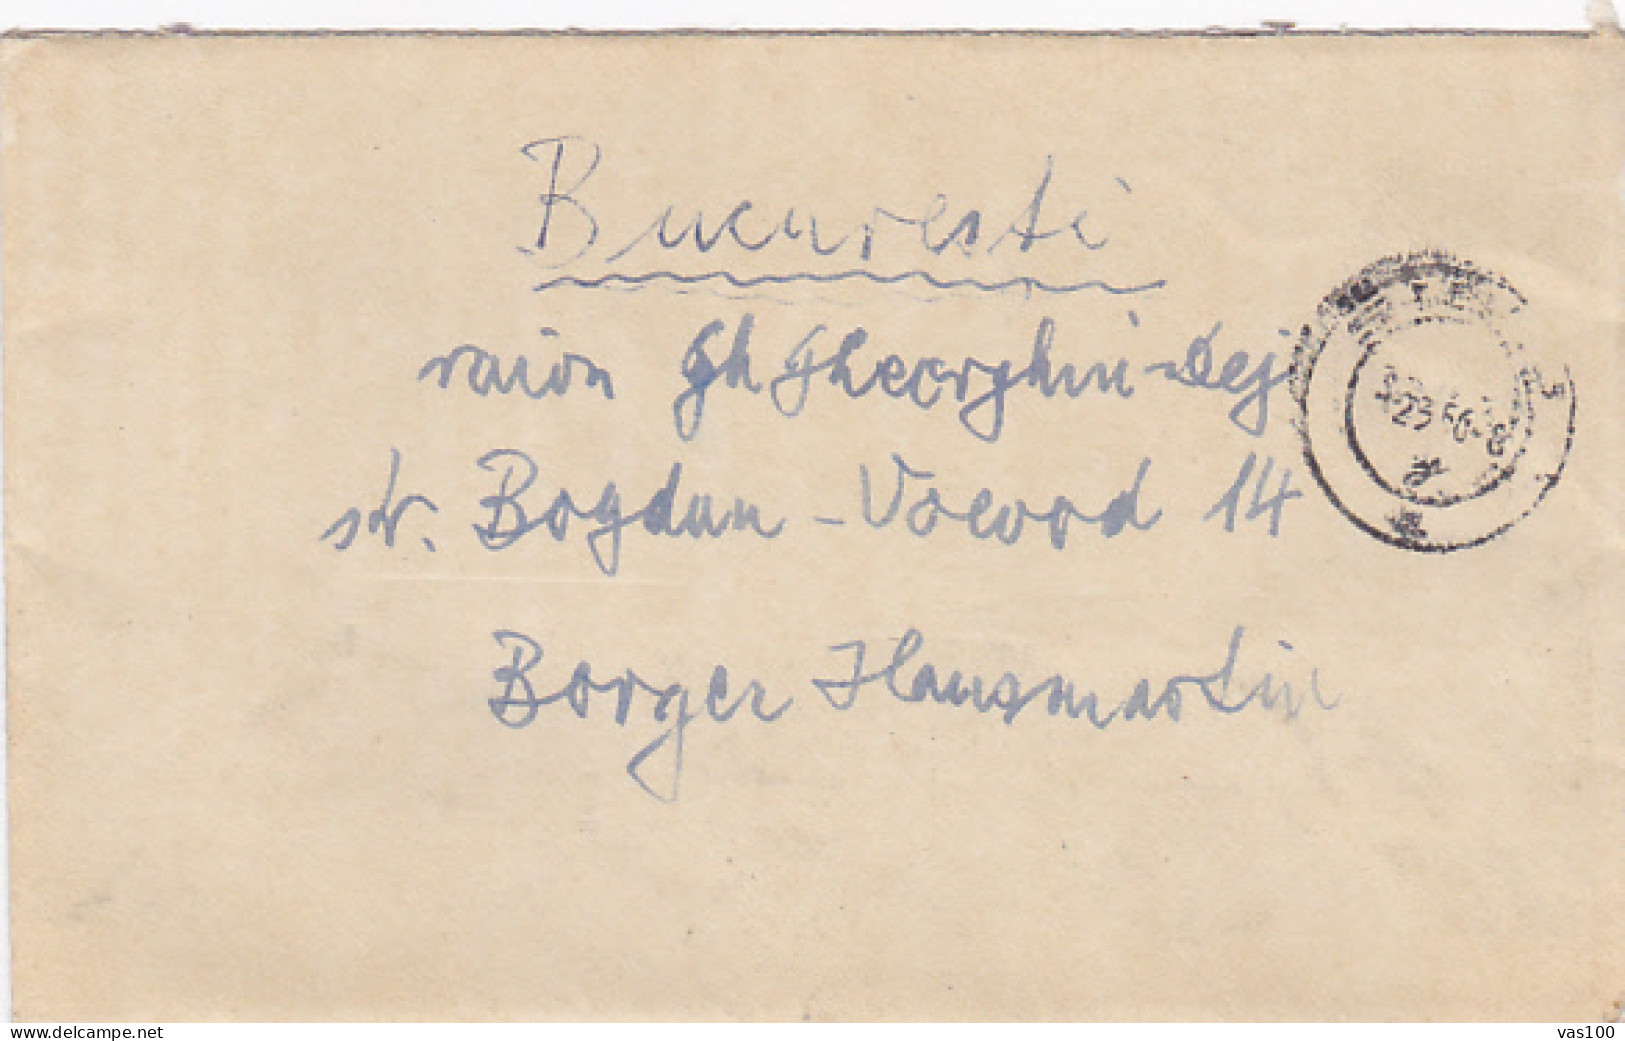 Bucuresti
raion Gh Gheorghiu-Dej
str. Bogdan-Voevod 14
Borger Hansmartin
delcampe.net
vas100